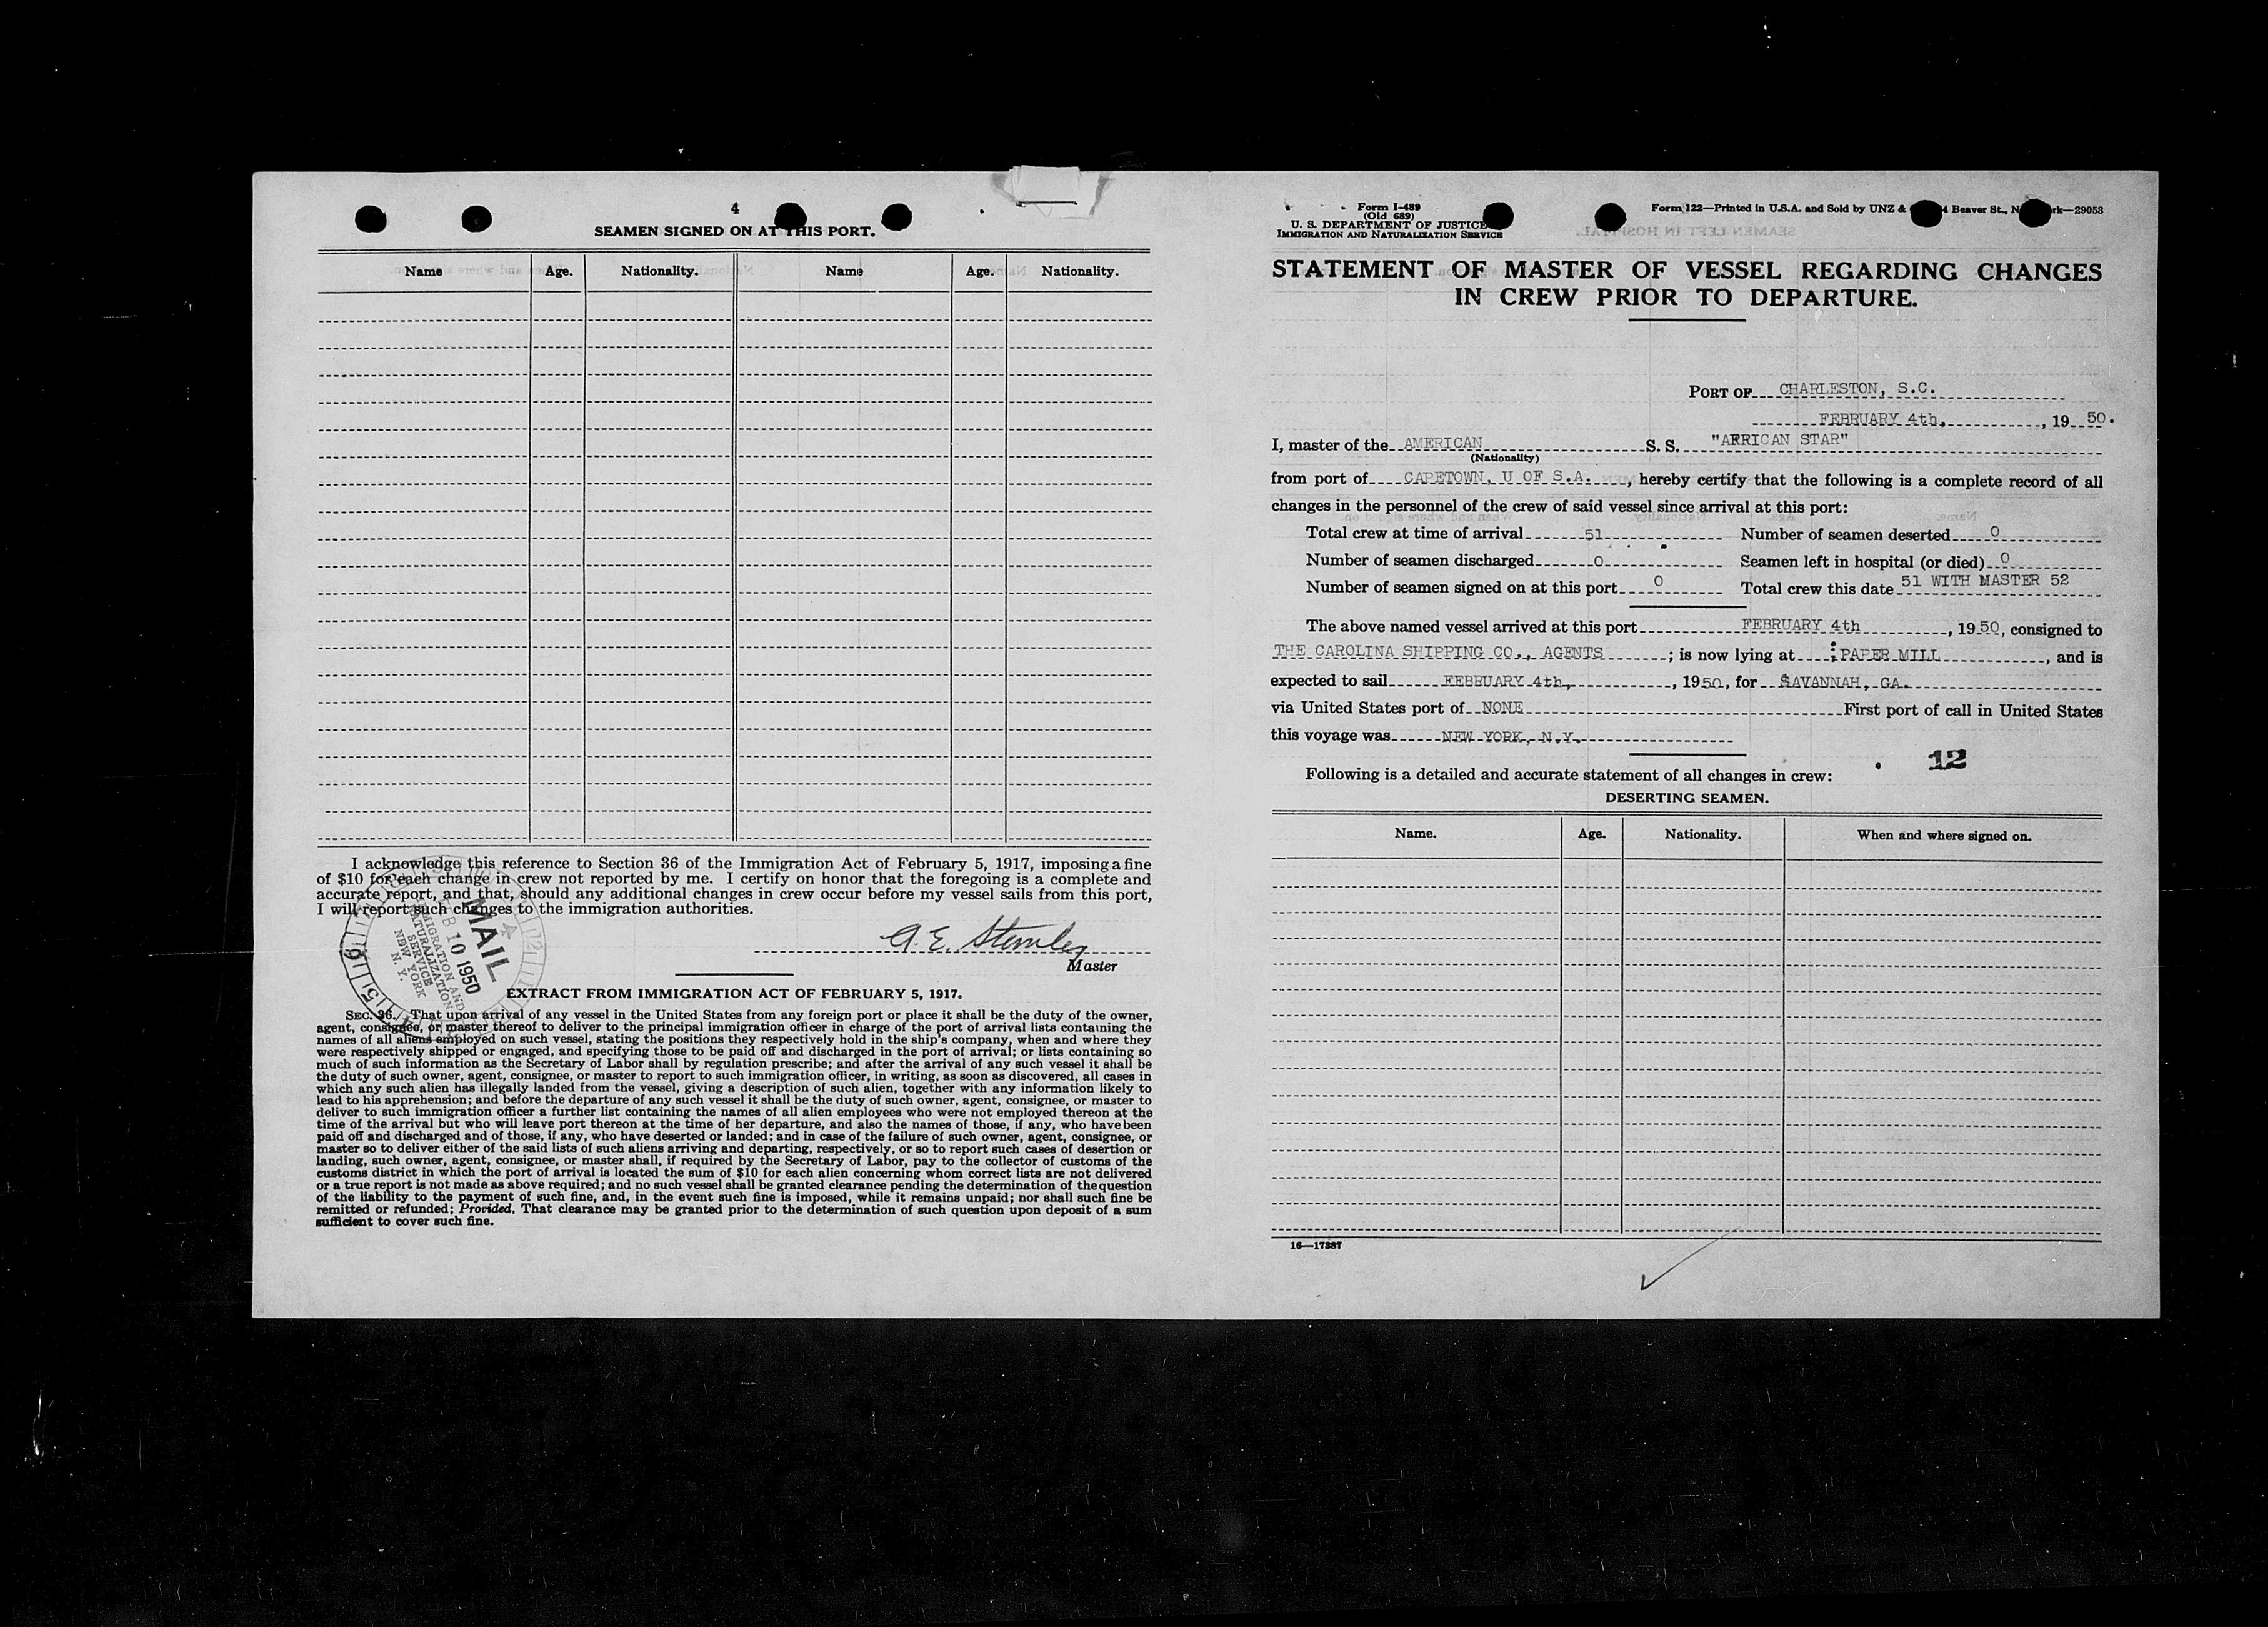 4
SEAMEN SIGNED ON AT THIS PORT.
Name Age. Nationality. Name Age. Nationality.
I acknowledge this reference to Section 36 of the Immigration Act of February 5, 1917, imposing a fine
of $10 for each change in crew not reported by me. I certify on honor that the foregoing is a complete and
accurate report, and that, should any additional changes in crew occur before my vessel sails from this port,
I will report such changes to the immigration authorities.
A. E.
Master
MAIL
10 1950
IMMIGRATION AND
NATURALIZATION
SERVICE
NEW YORK
N. Y.
EXTRACT FROM IMMIGRATION ACT OF FEBRUARY 5, 1917.
SEC. 36. That upon arrival of any vessel in the United States from any foreign port or place it shall be the duty of the owner,
agent, consignee, or master thereof to deliver to the principal immigration officer in charge of the port of arrival lists containing the
names of all aliens employed on such vessel, stating the positions they respectively hold in the ship's company, when and where they
were respectively shipped or engaged, and specifying those to be paid off and discharged in the port of arrival; or lists containing so
much of such information as the Secretary of Labor shall by regulation prescribe; and after the arrival of any such vessel it shall be
the duty of such owner, agent, consignee, or master to report to such immigration officer, in writing, as soon as discovered, all cases in
which any such alien has illegally landed from the vessel, giving a description of such alien, together with any information likely to
lead to his apprehension; and before the departure of any such vessel it shall be the duty of such owner, agent, consignee, or master to
deliver to such immigration officer a further list containing the names of all alien employees who were not employed thereon at the
time of the arrival but who will leave port thereon at the time of her departure, and also the names of those, if any, who have been
paid off and discharged and of those, if any, who have deserted or landed; and in case of the failure of such owner, agent, consignee, or
master so to deliver either of the said lists of such aliens arriving and departing, respectively, or so to report such cases of desertion or
landing, such owner, agent, consignee, or master shall, if required by the Secretary of Labor, pay to the collector of customs of the
customs district in which the port of arrival is located the sum of $10 for each alien concerning whom correct lists are not delivered
or a true report is not made as above required; and no such vessel shall be granted clearance pending the determination of the question
of the liability to the payment of such fine, and, in the event such fine is imposed, while it remains unpaid; nor shall such fine be
remitted or refunded; Provided, That clearance may be granted prior to the determination of such question upon deposit of a sum
sufficient to cover such fine.
Form I-489
(Old 689)
U. S. DEPARTMENT OF JUSTICE
IMMIGRATION AND NATURALIZATION SERVICE
Form 122—Printed in U.S.A. and Sold by UNZ & Beaver St., N rk—29053
STATEMENT OF MASTER OF VESSEL REGARDING CHANGES
IN CREW PRIOR TO DEPARTURE.
PORT OF CHARLESTON, S.C.
FEBRUARY 4th, , 19 50.
I, master of the AMERICAN S. S. "AFRICAN STAR"
(Nationality)
from port of CAPETOWN, U OF S.A. , hereby certify that the following is a complete record of all
changes in the personnel of the crew of said vessel since arrival at this port:
Total crew at time of arrival 51 Number of seamen deserted 0
Number of seamen discharged 0 Seamen left in hospital (or died) 0
Number of seamen signed on at this port 0 Total crew this date 51 WITH MASTER 52
The above named vessel arrived at this port FEBRUARY 4th , 1950, consigned to
THE CAROLINA SHIPPING CO., AGENTS ; is now lying at PAPER MILL , and is
expected to sail FEBRUARY 4th, , 1950, for SAVANNAH, GA.
via United States port of NONE First port of call in United States
this voyage was NEW YORK, N.Y.
12
Following is a detailed and accurate statement of all changes in crew:
DESERTING SEAMEN.
Name. Age. Nationality. When and where signed on.
16—17387